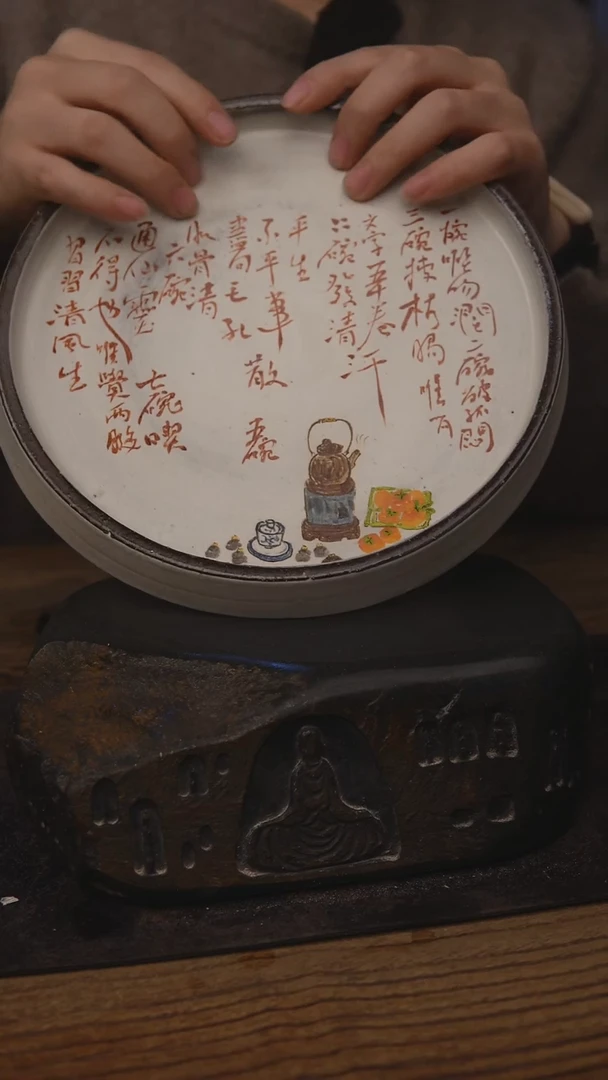 一碗喉吻潤二碗破孤悶
三碗搜枯腸惟有
文字五千卷汗
四碗發清
平生
不平事散
盡向毛孔
五碗
肌骨清
六碗
通仙靈
七碗喫
不得也惟覺兩腋
習習清風生